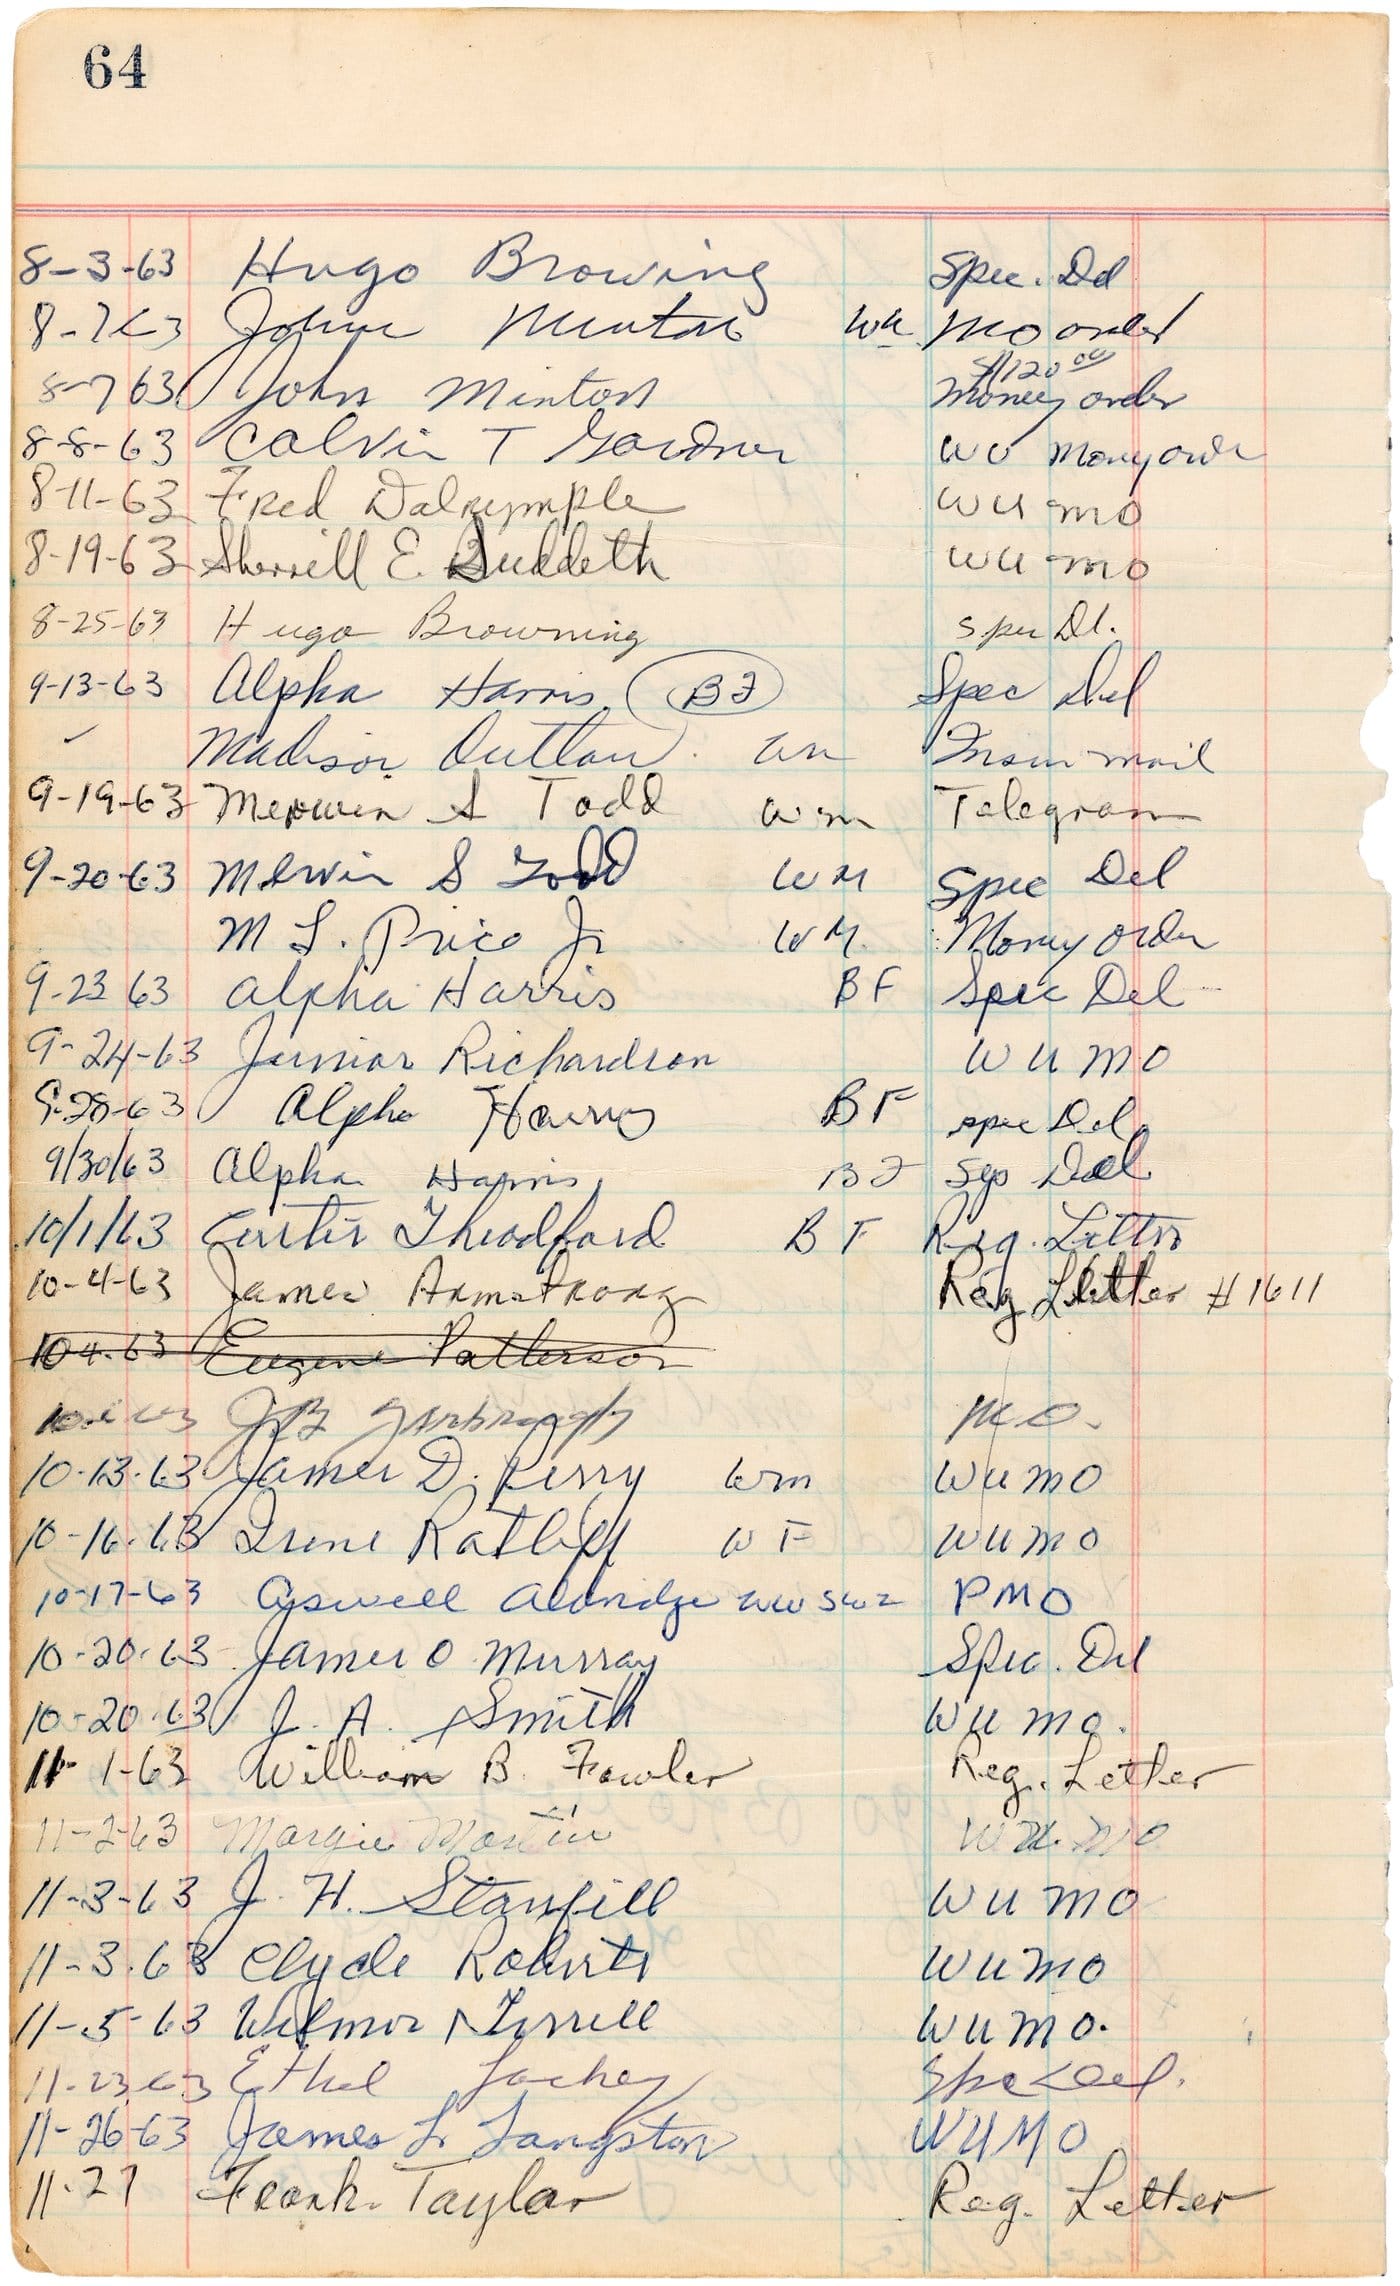 64
8-3-63 Hugo Browing Spec. Del
8-7-63 John Minton Mo order
$120 00
8-7 63 John Minton Money order
8-8-63 Calvin T Gardner WU Money order
8-11-63 Fred Dalrymple WU MO
8-19-63 Sherrill E. Suddeth WU MO
8-25-63 Hugo Browning Spec Dl.
9-13-63 Alpha Harris BF Spec Del
Madison Outlaw mail
9-19-63 S Todd WM Telegram
9-20-63 Melvin S Todd WM Spec Del
M L. Price Jr WM. Money order
9-23 63 Alpha Harris BF Spec Del
9-24-63 Junior Richardson WU MO
9-28-63 Alpha Harris BF spec Del
9/30/63 Alpha Harris BF Del
10/1/63 Curtis Theodford BF Reg. Letter
10-4-63 James Armstrong Reg Letter #1611
10 4-63 Eugene Patterson
63 M.O.
10-13-63 James D. Perry WM WU MO
10-16-63 Irene Ratliff WF WU MO
10-17-63 Aldridge PMO
10-20-63 James O Murray Spec. Del
10-20-63 J. A. Smith WU MO.
11-1-63 William B. Fowler Reg. Letter
11-2-63 Margie Martin WU. MO
11-3-63 J. H. Stanfill WU MO
11-3-63 Clyde Roberts WU MO
11-5-63 Wilmor WU MO.
11-23-63 Ethel Lackey Spec Del.
11-26-63 James L. Langston WU MO
11-27 Frank Taylor Reg. Letter